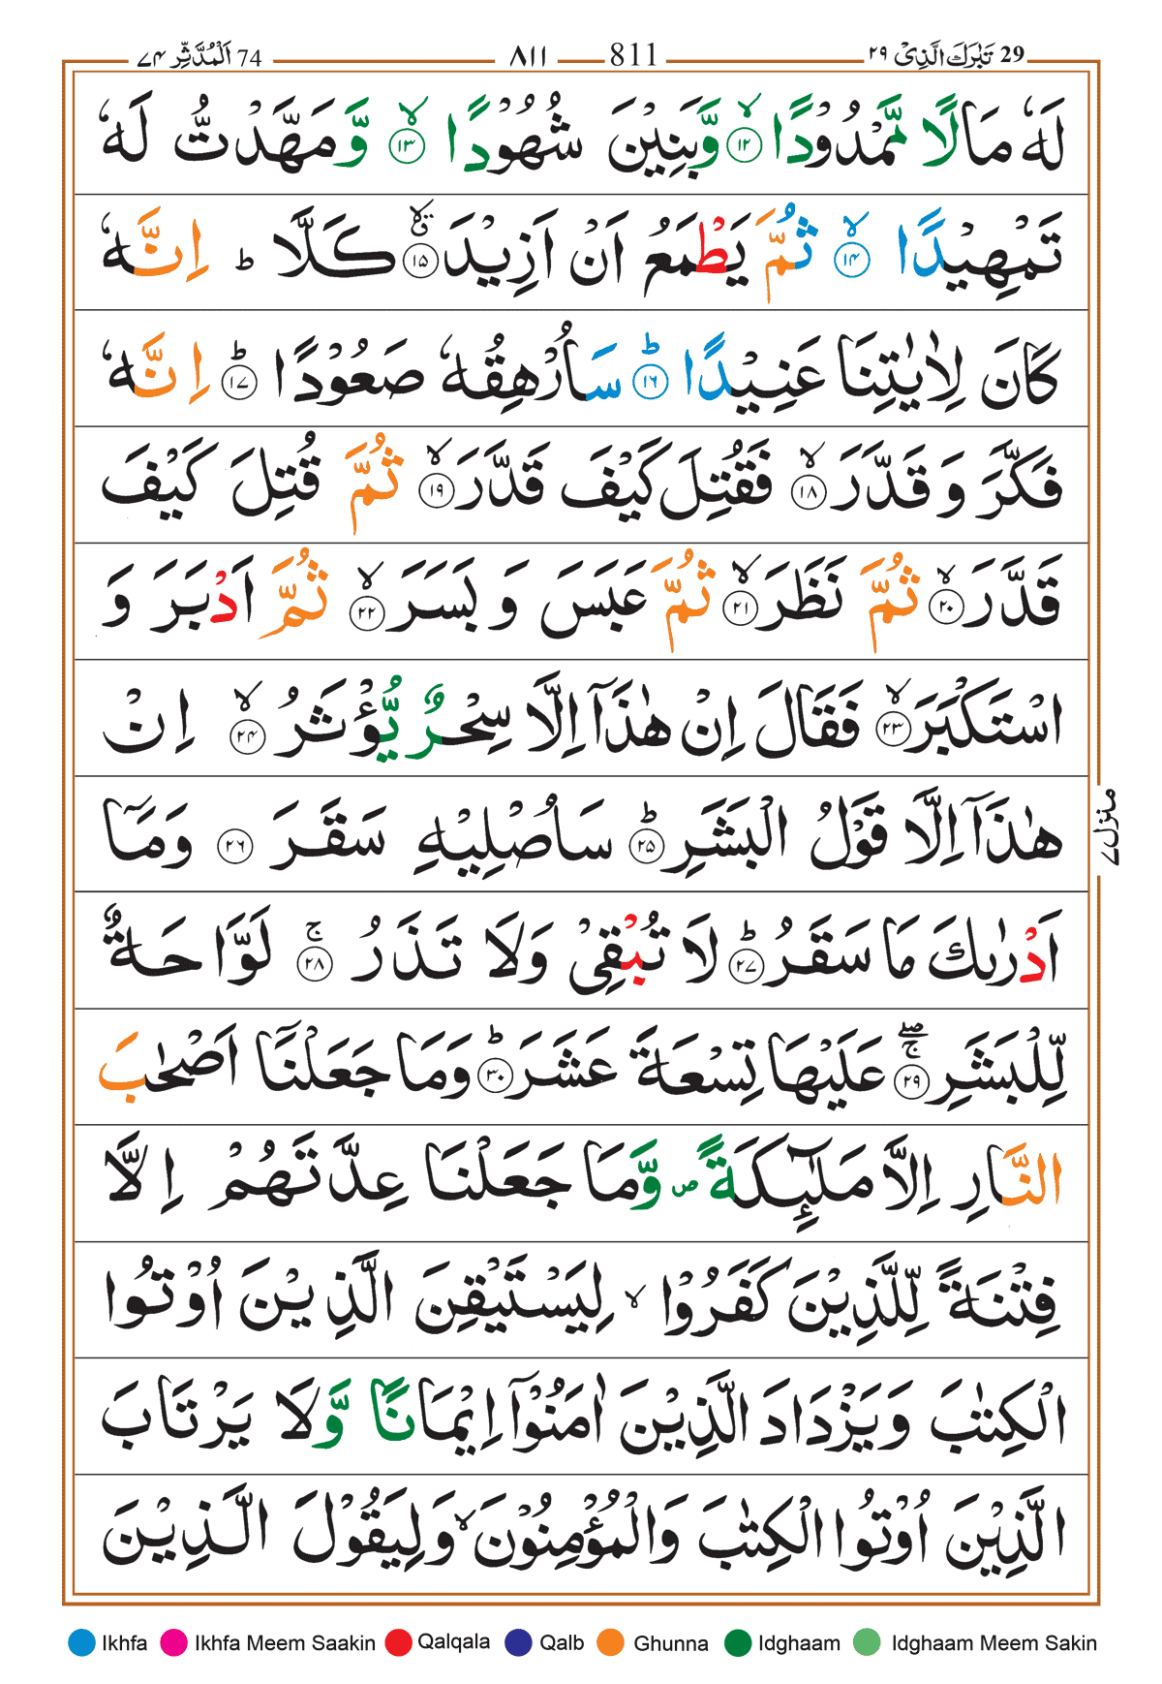 29 تَبٰرَكَ الَّذِیْ ٢٩ 811 ٨١١ 74 اَلْمُدَّثِّر ٧٤
لَهٗ مَالًا مَّمْدُوْدًا ۙ﴿١٢﴾ وَّبَنِیْنَ شُهُوْدًا ۙ﴿١٣﴾ وَّمَهَّدْتُّ لَهٗ
تَمْهِیْدًا ۙ﴿١٤﴾ ثُمَّ یَطْمَعُ اَنْ اَزِیْدَ ۙ﴿١٥﴾ كَلَّا ؕ اِنَّهٗ
كَانَ لِاٰیٰتِنَا عَنِیْدًا ؕ﴿١٦﴾ سَاُرْهِقُهٗ صَعُوْدًا ؕ﴿١٧﴾ اِنَّهٗ
فَكَّرَ وَ قَدَّرَ ۙ﴿١٨﴾ فَقُتِلَ كَیْفَ قَدَّرَ ۙ﴿١٩﴾ ثُمَّ قُتِلَ كَیْفَ
قَدَّرَ ۙ﴿٢٠﴾ ثُمَّ نَظَرَ ۙ﴿٢١﴾ ثُمَّ عَبَسَ وَ بَسَرَ ۙ﴿٢٢﴾ ثُمَّ اَدْبَرَ وَ
اسْتَكْبَرَ ۙ﴿٢٣﴾ فَقَالَ اِنْ هٰذَاۤ اِلَّا سِحْرٌ یُّؤْثَرُ ۙ﴿٢٤﴾ اِنْ
هٰذَاۤ اِلَّا قَوْلُ الْبَشَرِ ؕ﴿٢٥﴾ سَاُصْلِیْهِ سَقَرَ ﴿٢٦﴾ وَمَاۤ
اَدْرٰىكَ مَا سَقَرُ ؕ﴿٢٧﴾ لَا تُبْقِیْ وَلَا تَذَرُ ۚ﴿٢٨﴾ لَوَّاحَةٌ
لِّلْبَشَرِ ۖۚ﴿٢٩﴾ عَلَیْهَا تِسْعَةَ عَشَرَ ؕ﴿٣٠﴾ وَمَا جَعَلْنَاۤ اَصْحٰبَ
النَّارِ اِلَّا مَلٰٓىِٕكَةً ۪ وَّمَا جَعَلْنَا عِدَّتَهُمْ اِلَّا
فِتْنَةً لِّلَّذِیْنَ كَفَرُوْا ۙ لِیَسْتَیْقِنَ الَّذِیْنَ اُوْتُوا
الْكِتٰبَ وَیَزْدَادَ الَّذِیْنَ اٰمَنُوْۤا اِیْمَانًا وَّلَا یَرْتَابَ
الَّذِیْنَ اُوْتُوا الْكِتٰبَ وَالْمُؤْمِنُوْنَ ۙ وَلِیَقُوْلَ الَّذِیْنَ
منزل ٧
Ikhfa Ikhfa Meem Saakin Qalqala Qalb Ghunna Idghaam Idghaam Meem Sakin